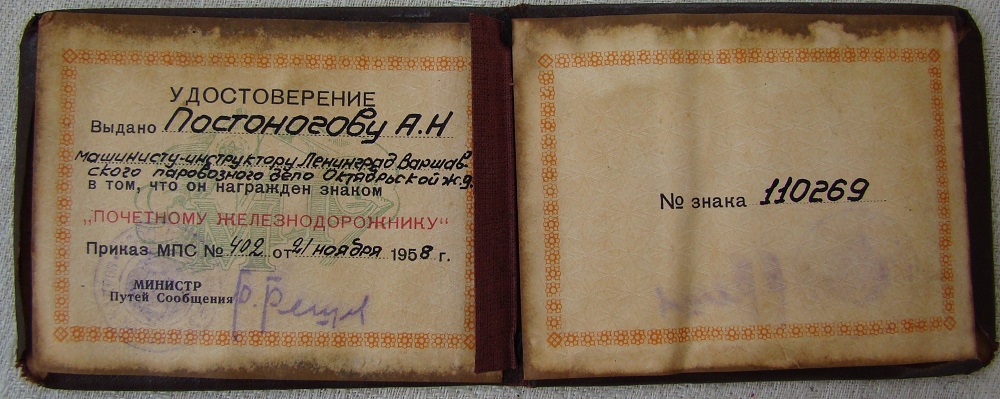 УДОСТОВЕРЕНИЕ
Выдано Постоногову А.Н
машинисту-инструктору Ленинград Варшав-
ского паровозного депо Октябрьской ж.д.
в том, что он награжден знаком
„ПОЧЕТНОМУ ЖЕЛЕЗНОДОРОЖНИКУ“
Приказ МПС № 402 от 21 ноября 1958 г.
МИНИСТР
Путей Сообщения
№ знака 110269